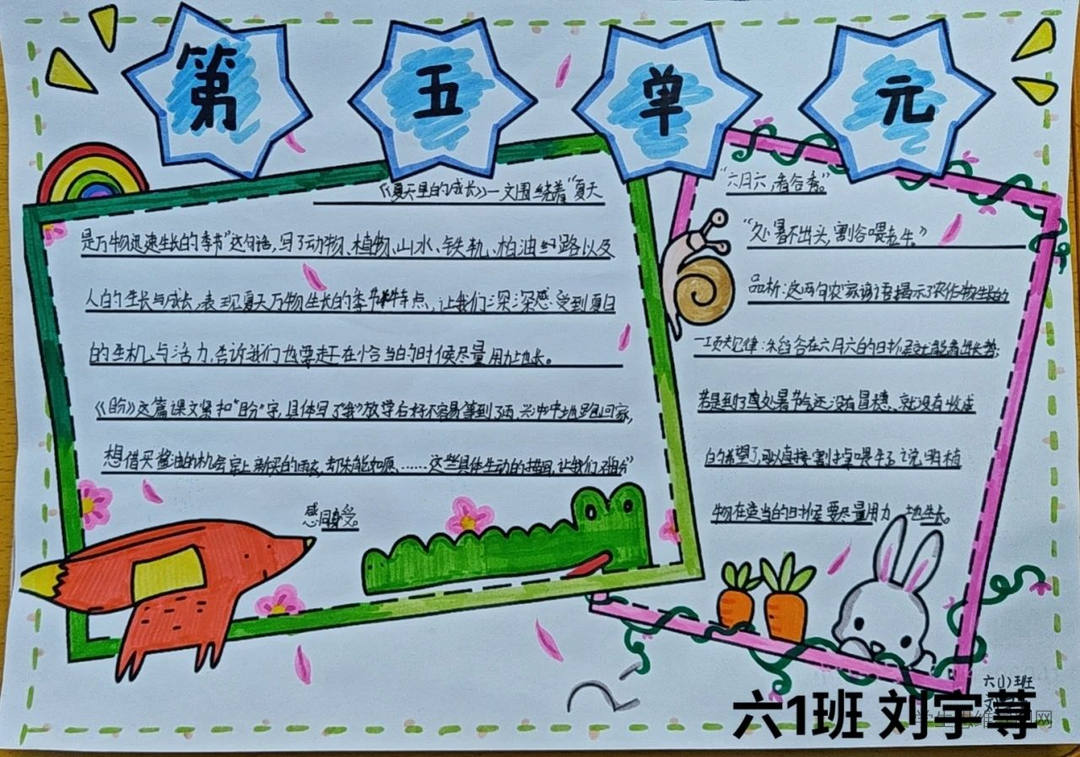 第五单元
《夏天里的成长》一文围绕着“夏天
是万物迅速生长的季节”这句话，写了动物、植物、山水、铁轨、柏油马路以及
人的生长与成长，表现夏天万物生长的季节特点，让我们深深感受到夏日
的生机与活力，告诉我们也要赶在恰当的时候尽量用力地长。
《盼》这篇课文紧扣“盼”字，具体写了“我”放学后好不容易等到了雨，兴冲冲地跑回家，
想借买酱油的机会穿上新买的雨衣，却未能如愿……这些具体生动的描写，让我们
感同身受。
“六月六，看谷秀。”
“处暑不出头，割谷喂老牛。”
品析：这两句农家谚语揭示了农作物生长的
一项规律：水稻谷在六月六的时候就能看出长势；
若是到了处暑节气还没有冒穗，就没有收成
的希望了，可以直接割掉喂牛了，说明植
物在适当的时候要尽量用力地生长。
六(1)班
六1班 刘宇尊